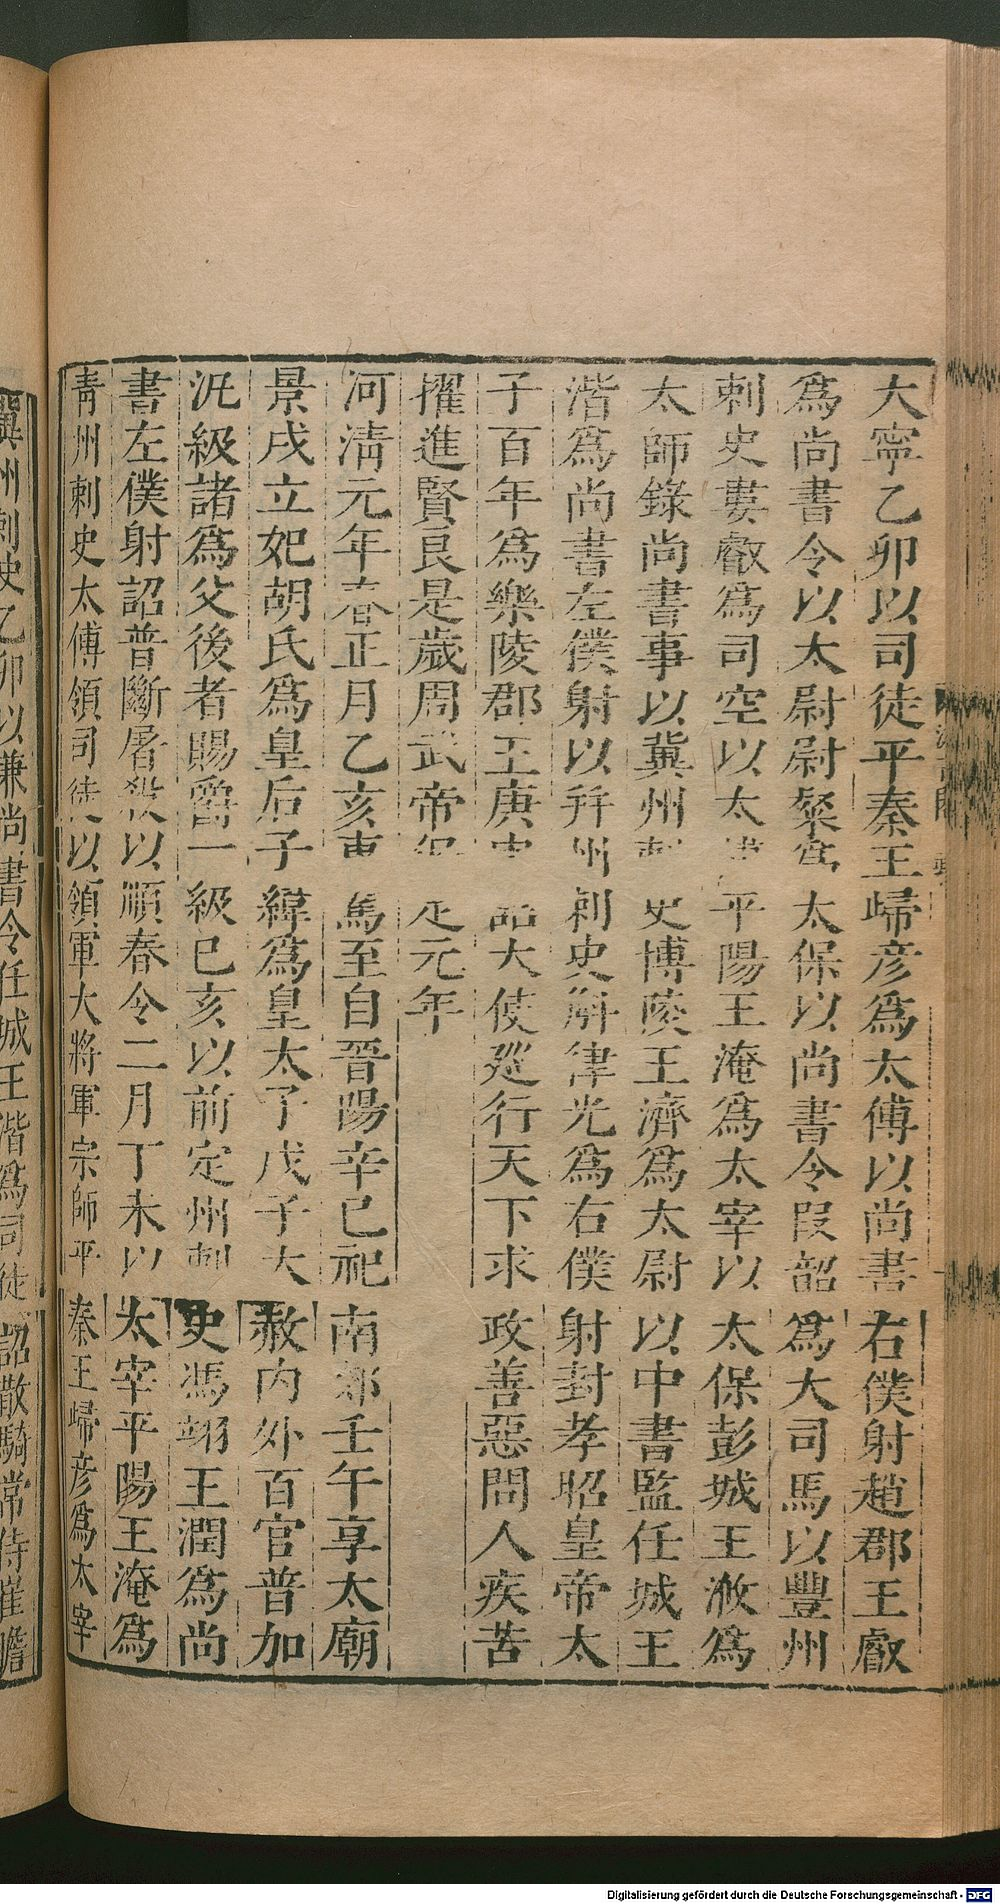 大寧乙卯以司徒平秦王歸彥爲太傅以尚書右僕射趙郡王叡
爲尚書令以太尉尉粲爲太保以尚書令段韶爲大司馬以豐州
刺史婁叡爲司空以太傅平陽王淹爲太宰以太保彭城王浟爲
太師錄尚書事以冀州刺史博陵王濟爲太尉以中書監任城王
湝爲尚書左僕射以并州刺史斛律光爲右僕射封孝昭皇帝太
子百年爲樂陵郡王庚申詔大使廵行天下求政善惡問人疾苦
擢進賢良是歲周武帝保定元年
河淸元年春正月乙亥車駕至自晉陽辛巳祀南郊壬午享太廟
景戌立妃胡氏爲皇后子緯爲皇太子戊子大赦内外百官普加
汎級諸爲父後者賜爵一級巳亥以前定州刺史馮翊王潤爲尚
書左僕射詔普斷屠殺以順春令二月丁未以太宰平陽王淹爲
靑州刺史太傅領司徒以領軍大將軍宗師平秦王歸彥爲太宰
冀州刺史乙卯以兼尚書令任城王湝爲司徒詔散騎常侍崔瞻
Digitalisierung gefördert durch die Deutsche Forschungsgemeinschaft - DFG